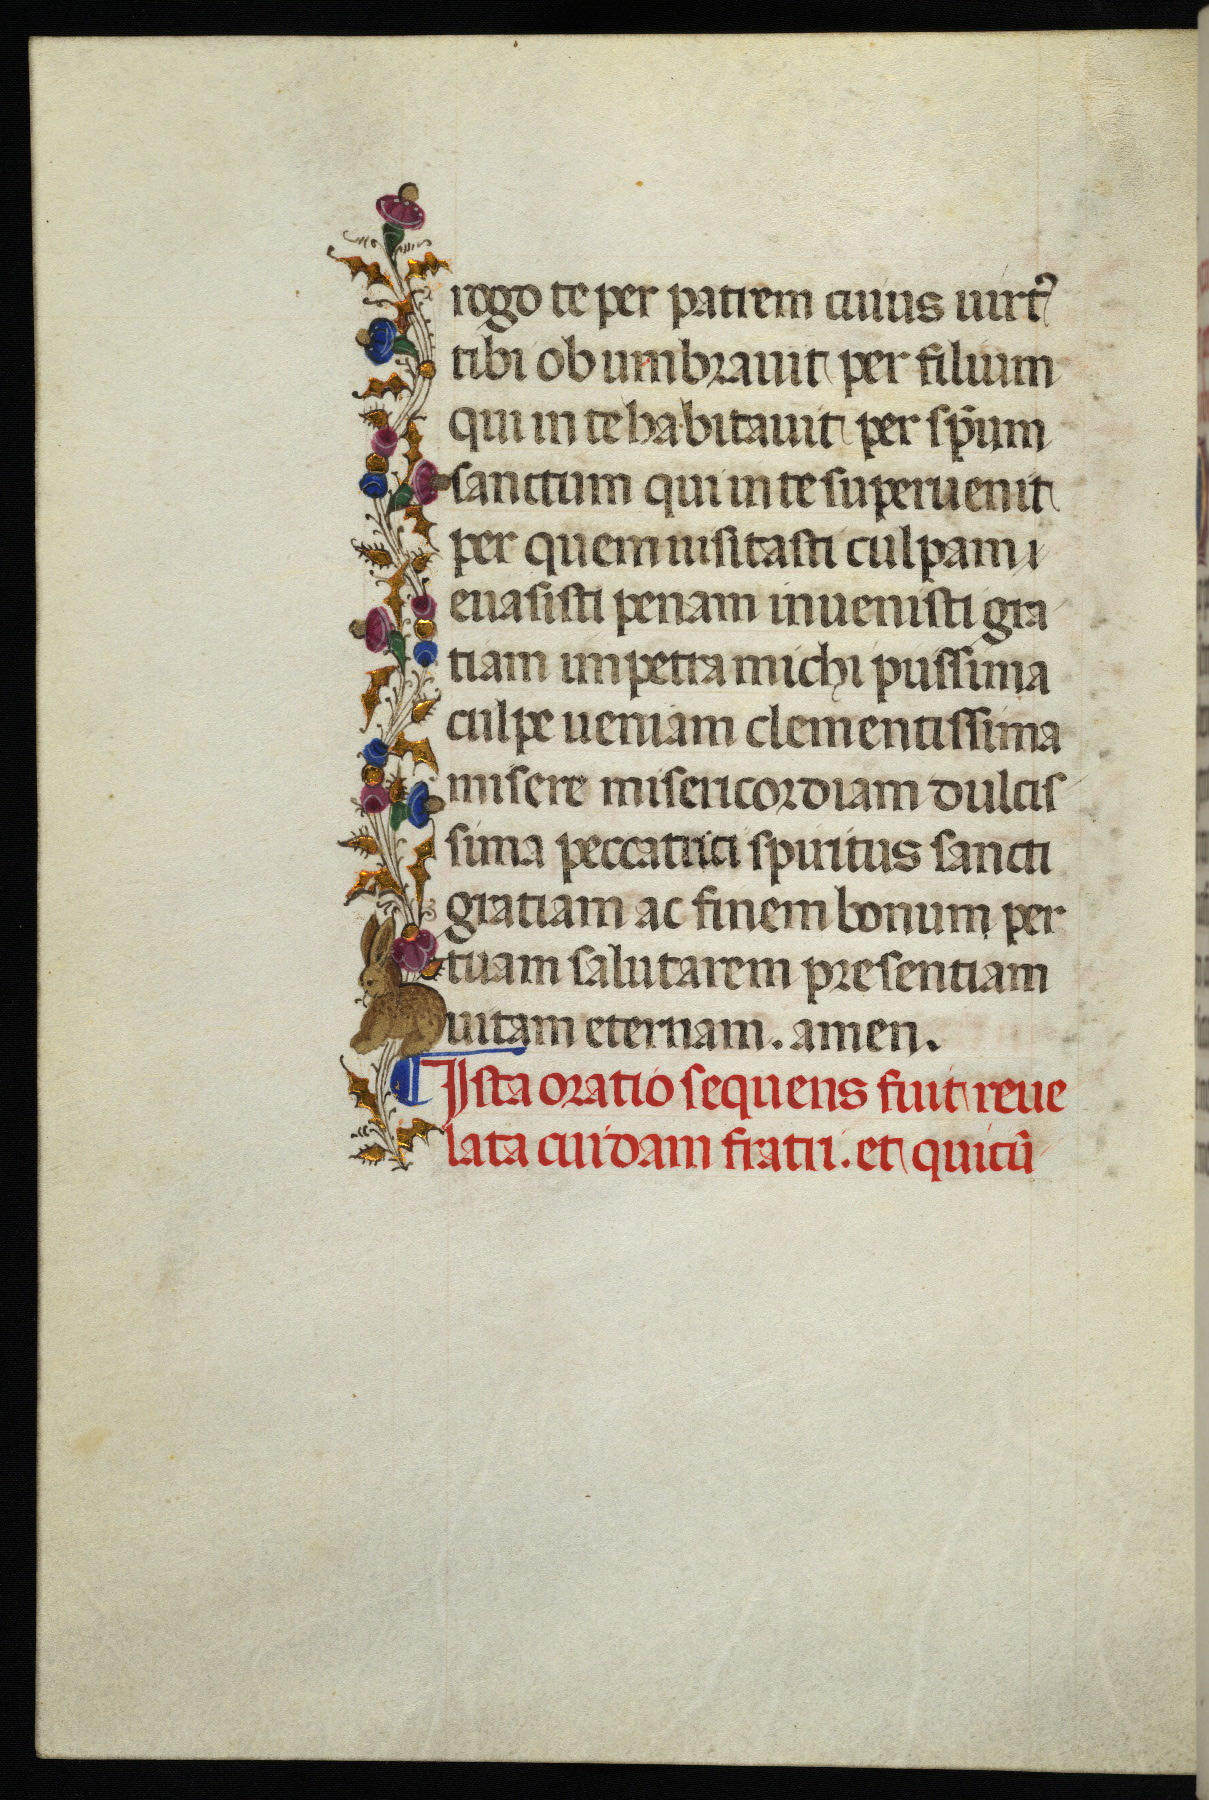 rogo te per patrem cuius uirtꝰ
tibi obumbrauit per filium
qui in te habitauit per sp̄um
sanctum qui in te superuenit
per quem uisitasti culpam ⁊
euasisti penam inuenisti gra
tiam impetra michi piissima
culpe ueniam clementissima
misere misericordiam dulcis
sima peccatrici spiritus sancti
gratiam ac finem bonum per
tuam salutarem presentiam
uitam eternam. amen.
¶ Ista oratio sequens fuit reue
lata cuidam fratri. et quicū